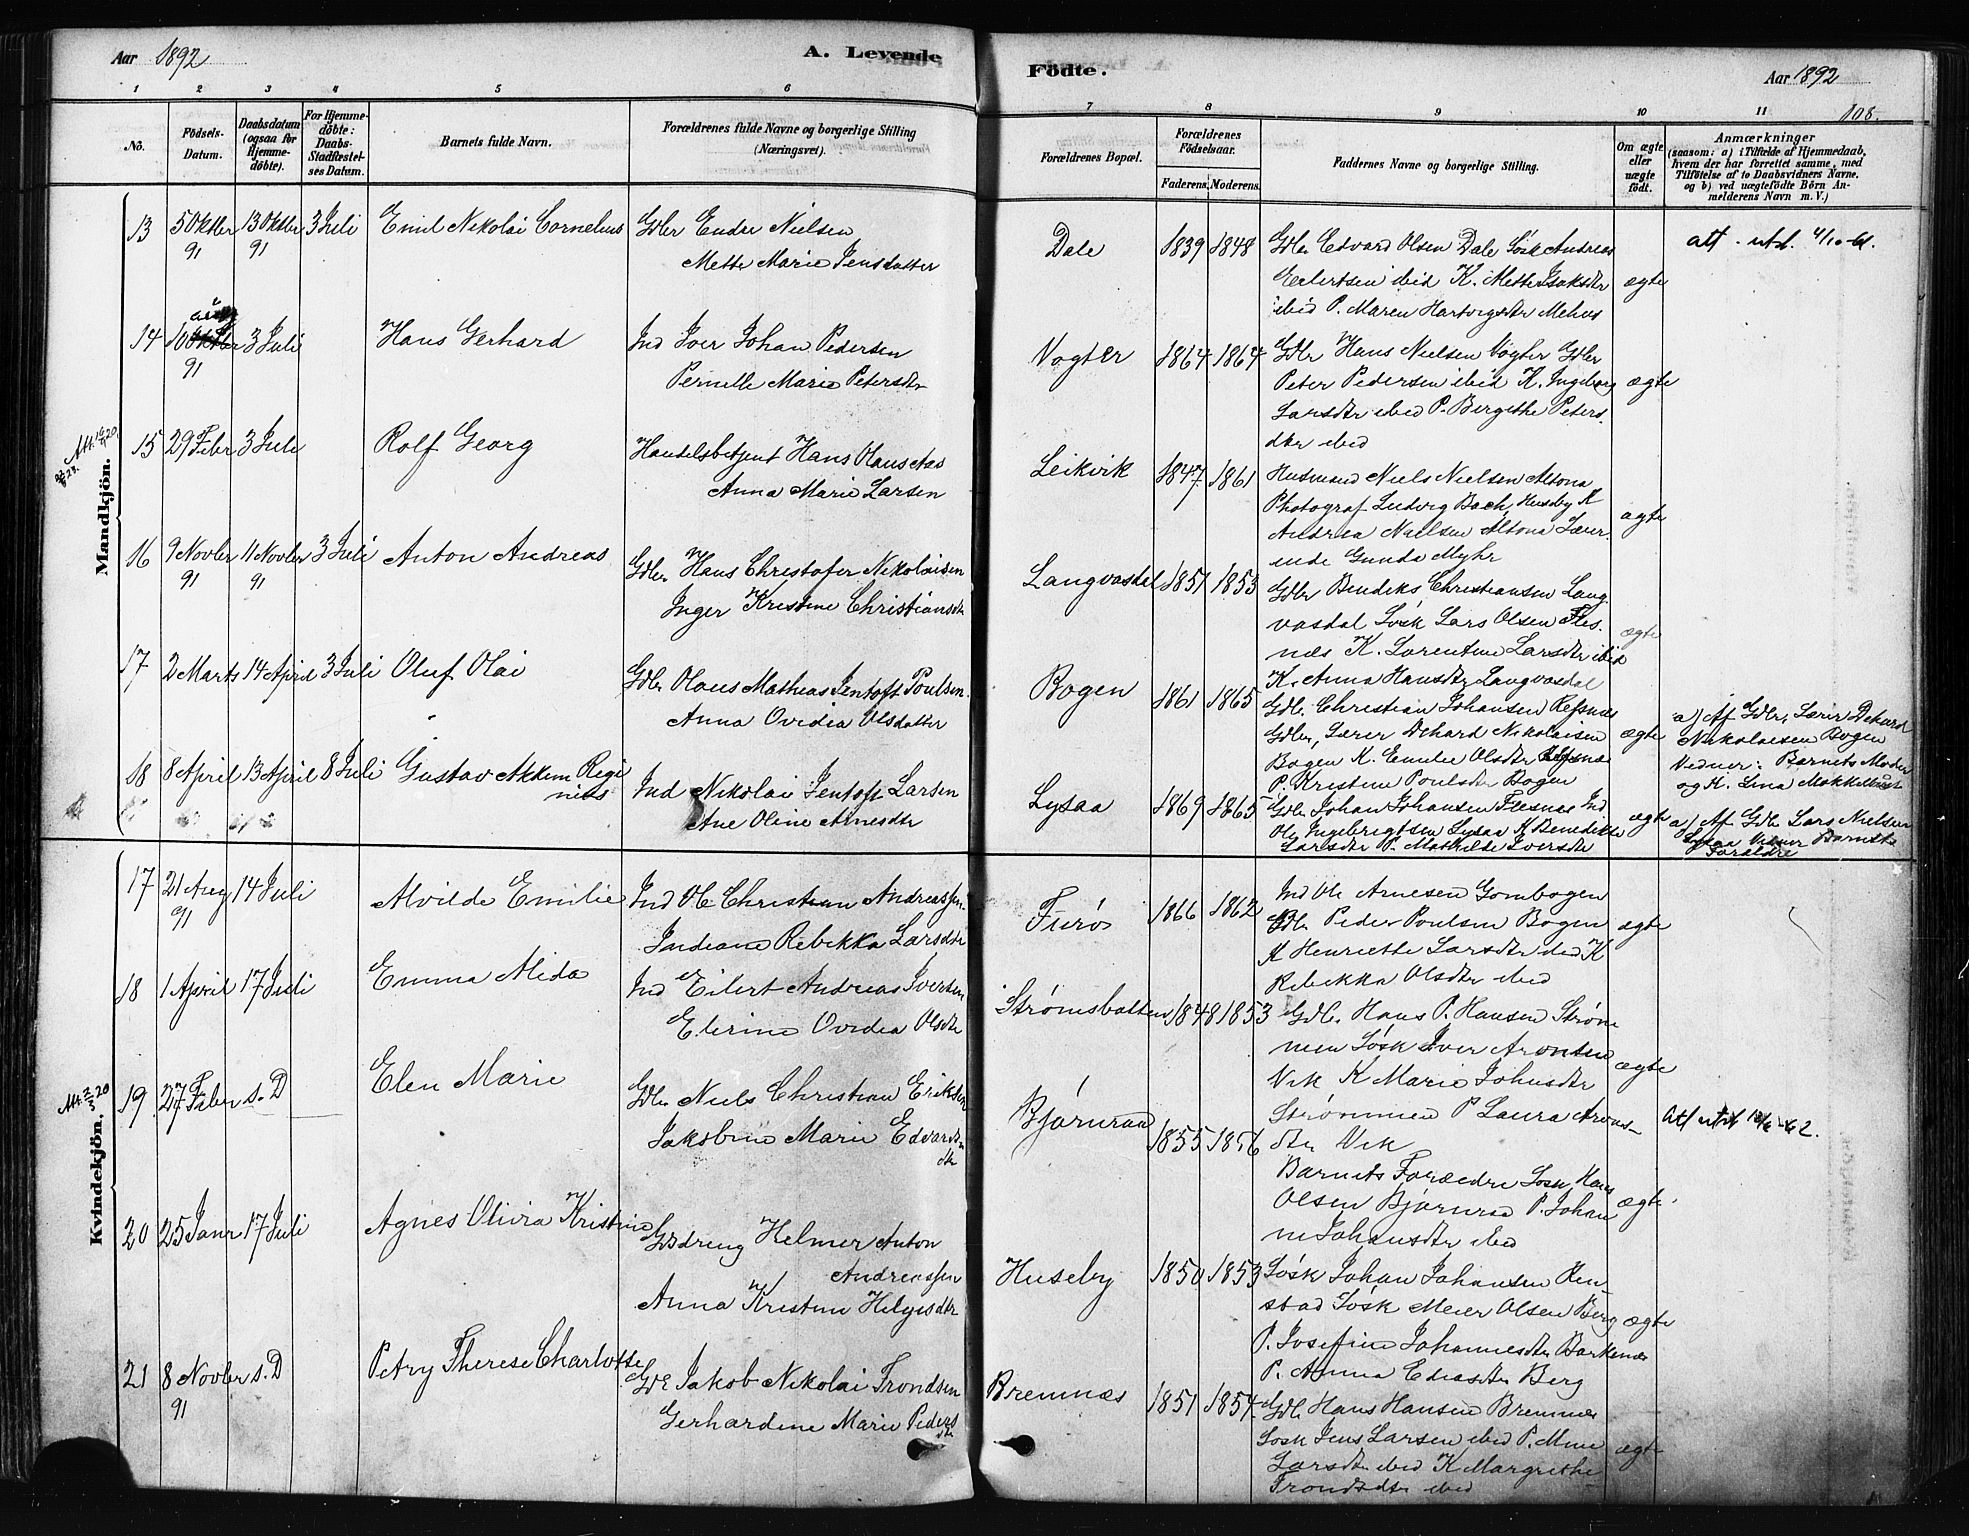 Aar 1892
A. Levende
Födte.
Aar 1892
108.
1 2 3 4 5 6 7 8 9 10 11
No.
Födsels-Datum.
Daabsdatum (ogsaa for Hjemme-döbte).
For Hjemme-döbte: Daabs-Stadfæstelses Datum.
Barnets fulde Navn.
Forældrenes fulde Navne og borgerlige Stilling (Næringsvei).
Forældrenes Bopæl.
Forældrenes Födselsaar.
Faderens. Moderens.
Faddernes Navne og borgerlige Stilling.
Om ægte eller uægte födt.
Anmærkninger
(saasom: a) i Tilfælde af Hjemmedaab, hvem der har forrettet samme, med Tilföielse af to Daabsvidners Navne, og b) ved uægtefödte Börn Anmelderens Navn m. V.)
Mandkjön.
13 5 Oktbr 91 13 Oktbr 91 3 Juli Emil Nikolai Cornelius
Gdbr Endre Nielsen
Mette Marie Jensdatter
Dale 1839 1848
Gdbr Edvard Olsen Dale Søsk Andreas
Eilertsen ibid K. Mette Isaksdtr
ibid P. Maren Hartvigsdtr Mehus
ægte
att. utst. 4/10-61.
14 10 Aug 91 3 Juli Hans Gerhard
Ind Iver Johan Pedersen
Pernelle Marie Petersdtr
Vogter 1864 1864
Gdbr Hans Nielsen Vogter Gdbr
Peter Pedersen ibid K. Ingeborg
Larsdtr ibid P. Bergithe Peters
dtr ibid
ægte
15 29 Febr 3 Juli Rolf Georg
Handelsbetjent Hans Olaus Aas
Anna Marie Larsen
Leikvik 1847 1861
Husmand Niels Nielsen Altona
Photograf Ludvig Bach, Huseby K
Andrea Nielsen Altona Lærer
inde Gunda Myhr
ægte
16 9 Novbr 91 11 Novbr 91 3 Juli Anton Andreas
Gdbr Hans Christofer Nikolaisen
Inger Kristine Christiansdtr
Langvasdal 1851 1853
Gdbr Bendiks Christiansen Lang
vasdal Søsk Lars Olsen Fles
næs K. Lorentine Larsdtr ibid
K. Anna Hansdtr Langvasdal
ægte
17 2 Marts 14 April 3 Juli Oluf Olai
Gdbr Olaus Mathias Jentoft Poulsen
Anna Ovidia Olsdatter
Bogen 1861 1865
Gdbr Christian Johansen Refsnæs
Gdbr, Lærer Dehard Nikolaisen
Bogen K. Emilie Olsdtr Refsnæs
P. Kristine Poulsdtr Bogen
ægte
a) Af Gdbr, Lærer Dehard
Nikolaisen Bogen
Vidner: Barnets Moder
og K. Lina
18 8 April 13 April 8 Juli Gustav Akkim Regi
nius
Ind Nikolai Jentoft Larsen
Ane Oline Arnesdtr
Lysaa 1869 1865
Gdbr Johan Johansen Flesnæs Ind
Ole Ingebrigtsen Lysaa K Benedikte
Larsdtr P. Mathilde Iversdtr
ægte
a) Af Gdbr Lars Nielsen
Lysaa Vidner Barnets
Forældre
Kvindekjön.
17 21 Aug 91 14 Juli Alvilde Emilie
Ind Ole Christian Andreassen
Indiane Rebekka Larsdtr
Furøs 1866 1862
Ind Ole Arnesen Gombogen
Gdbr Peder Poulsen Bogen
K Henriette Larsdtr ibid K
Rebekka Olsdtr ibid
ægte
18 1 April 17 Juli Emma Alida
Ind Eilert Andreas Iversen
Elerine Ovidia Olsdtr
Strømsbotten 1848 1853
Gdbr. Hans P. Hansen Strøm
men Søsk Iver Aronsen
Vik K Marie Johnsdtr
Strømmen P Laura Arons
dtr Vik
ægte
19 27 Febr s. D Elen Marie
Gdbr Niels Christian Eriksen
Jakobine Marie Edvards
dtr
Bjørnraa 1855 1856
Barnets Forældre Søsk Hans
Olsen Bjørnraa P. Johan
ne Johansdtr ibid
ægte
Att utst 12/6-62.
20 25 Janr 17 Juli Agnes Olivia Kristine
Gbdreng Helmer Anton
Andreassen
Anna Kristine Helgesdtr
Huseby 1850 1853
Søsk Johan Johansen Ren
stad Søsk Meier Olsen Berg
P. Josefine Johannesdtr Barkenæs
P. Anna Eliasdtr Berg
ægte
21 8 Novbr 91 s. D Petry Therese Charlotte
Gdb Jakob Nikolai Trondsen
Gerhardine Marie Peders
dtr
Bremnæs 1851 1854
Gdbr Hans Hansen Bremnæs
Søsk Jens Larsen ibid P. Mine
Larsdtr ibid K Margrethe
Trondsdtr ibid
ægte